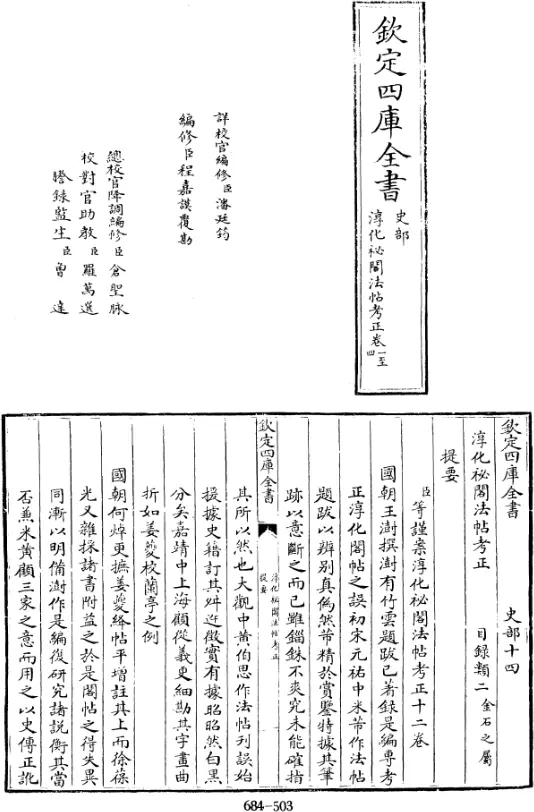 欽定四庫全書
史部
淳化祕閣法帖考正卷一至四
詳校官編修臣潘廷筠
編修臣程嘉謨覆勘
總校官降調編修臣倉聖脉
校對官助教臣羅萬選
謄錄監生臣曾達
欽定四庫全書　史部十四
淳化祕閣法帖考正　目錄類二金石之屬
提要
臣等謹案淳化祕閣法帖考正十二卷
國朝王澍撰澍有竹雲題跋已著錄是編專考
正淳化閣帖之誤初宋元祐中米芾作法帖
題跋以辨別真偽然芾精於賞鑒特據其筆
跡以意斷之而已雖錙銖不爽究未能確指
欽定四庫全書
淳化祕閣法帖考正
提要
其所以然也大觀中黃伯思作法帖刊誤始
援據史籍訂其舛迕徵實有據昭昭然白黑
分矣嘉靖中上海顧從義更細勘其字畫曲
折如姜夔校蘭亭之例
國朝何焯更摭姜夔絳帖平增註其上而徐葆
光又雜採諸書附益之於是閣帖之得失異
同漸以明備澍作是編復研究諸説衡其當
否蕉米黃顧三家之意而用之以史傳正訛
684-503